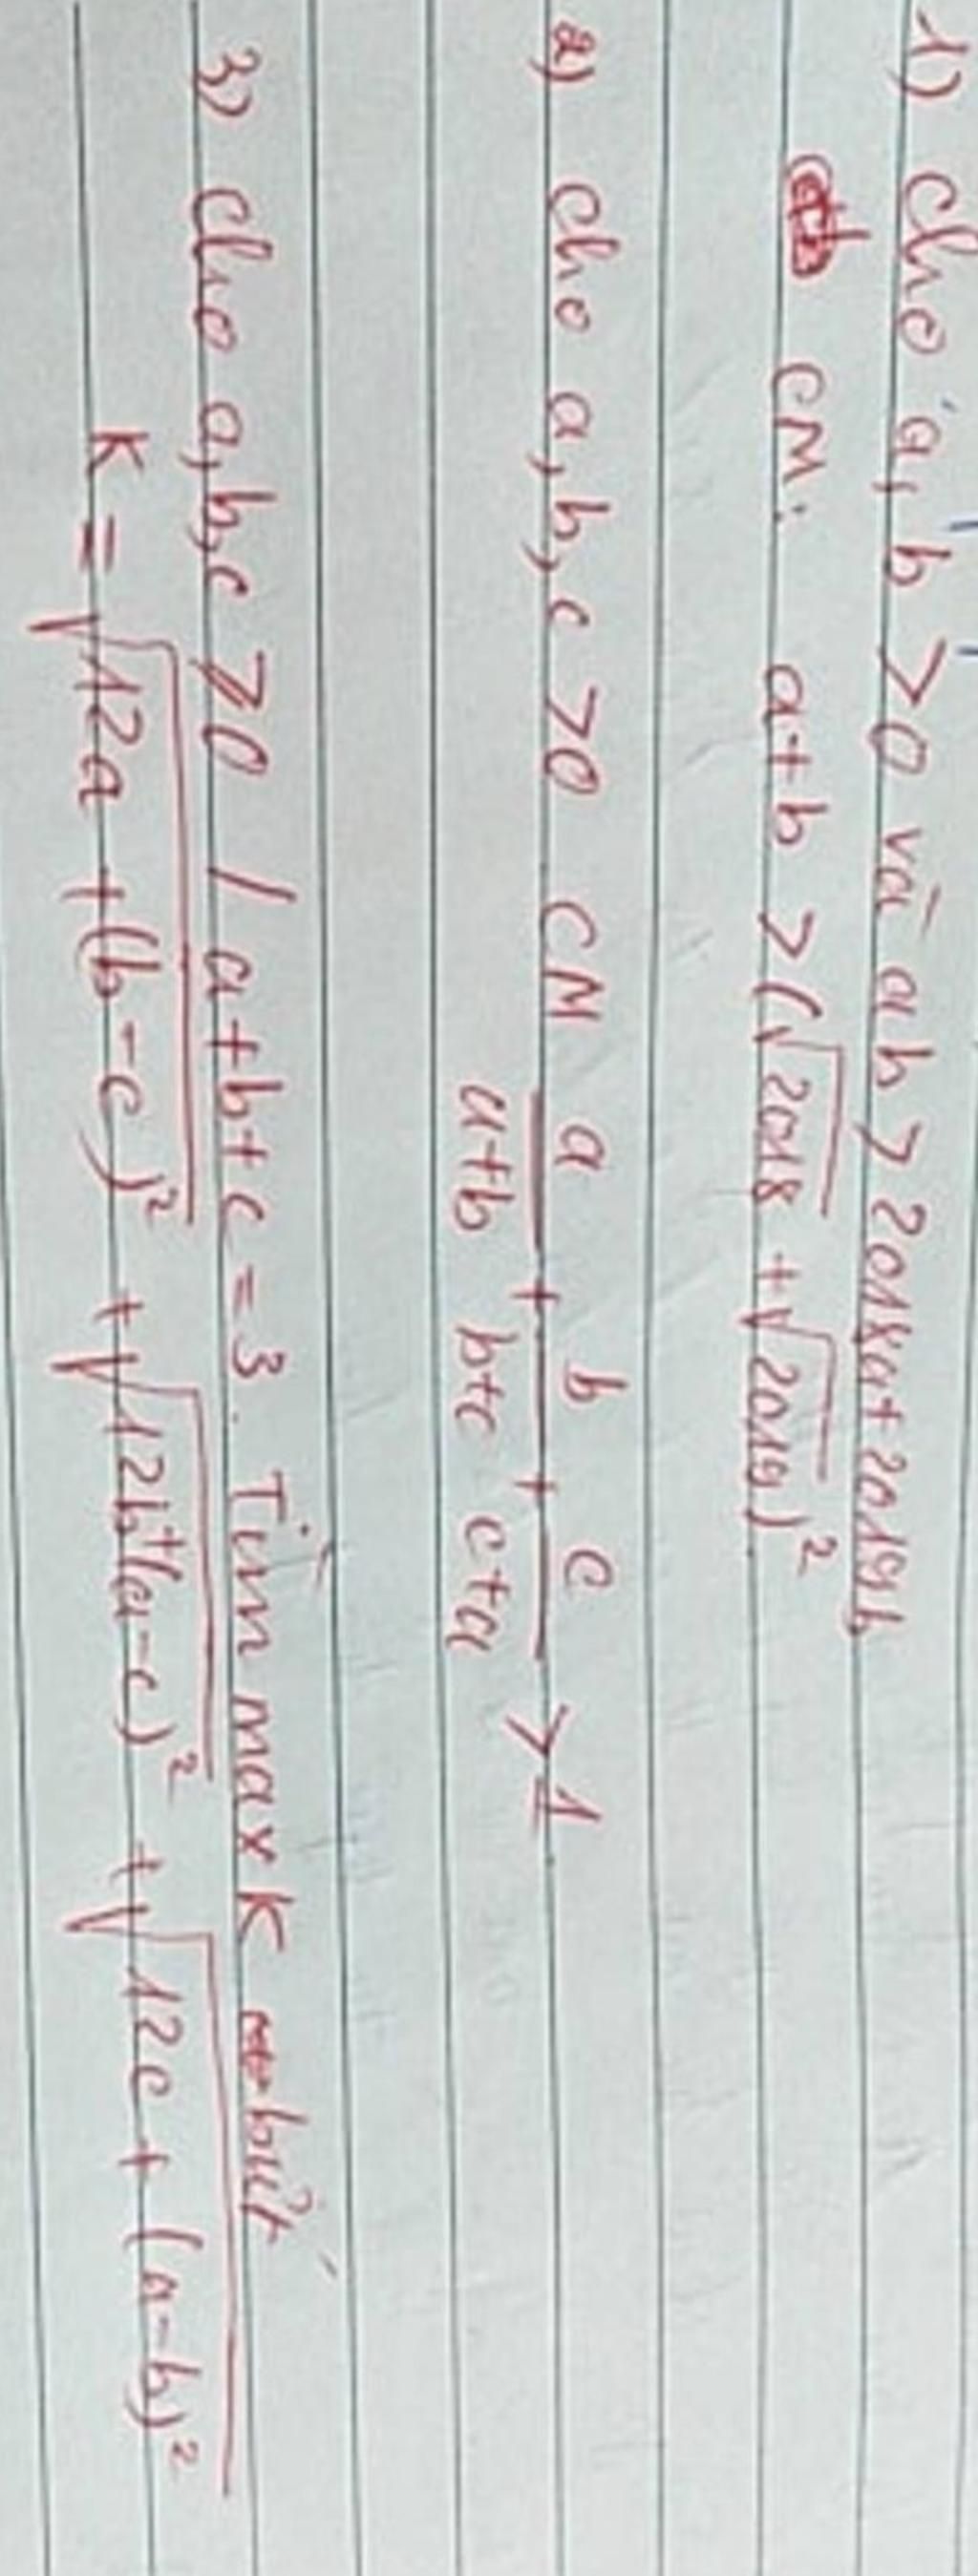 1) Cho a, b > 0 và ab > 2018a + 2019b
CM: a+b > (√2018 + √2019)²
2) Cho a, b, c > 0 CM a/(a+b) + b/(b+c) + c/(c+a) > 1
3) Cho a, b, c ≥ 0 / a+b+c = 3. Tìm max K biết
K = √(12a + (b-c)²) + √(12b + (a-c)²) + √(12c + (a-b)²)